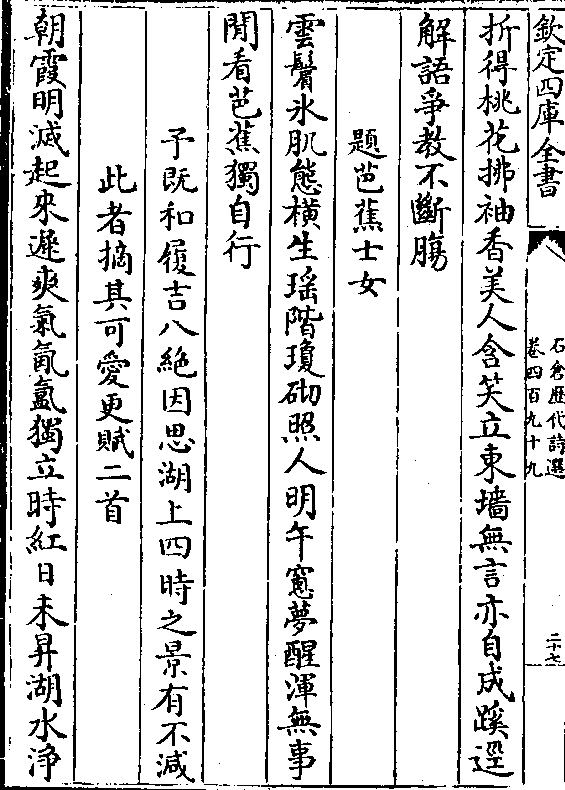 欽定四庫全書
石倉歷代詩選
卷四百九十九
二十七
折得桃花拂袖香美人含笑立東墻無言亦自成蹊逕
解語爭教不斷膓
題芭蕉士女
雲鬟氷肌態橫生瑶階瓊砌照人明午窻夢醒渾無事
閒看芭蕉獨自行
予既和履吉八絶因思湖上四時之景有不減
此者摘其可愛更賦二首
朝霞明滅起來遲爽氣氤氳獨立時紅日未昇湖水淨